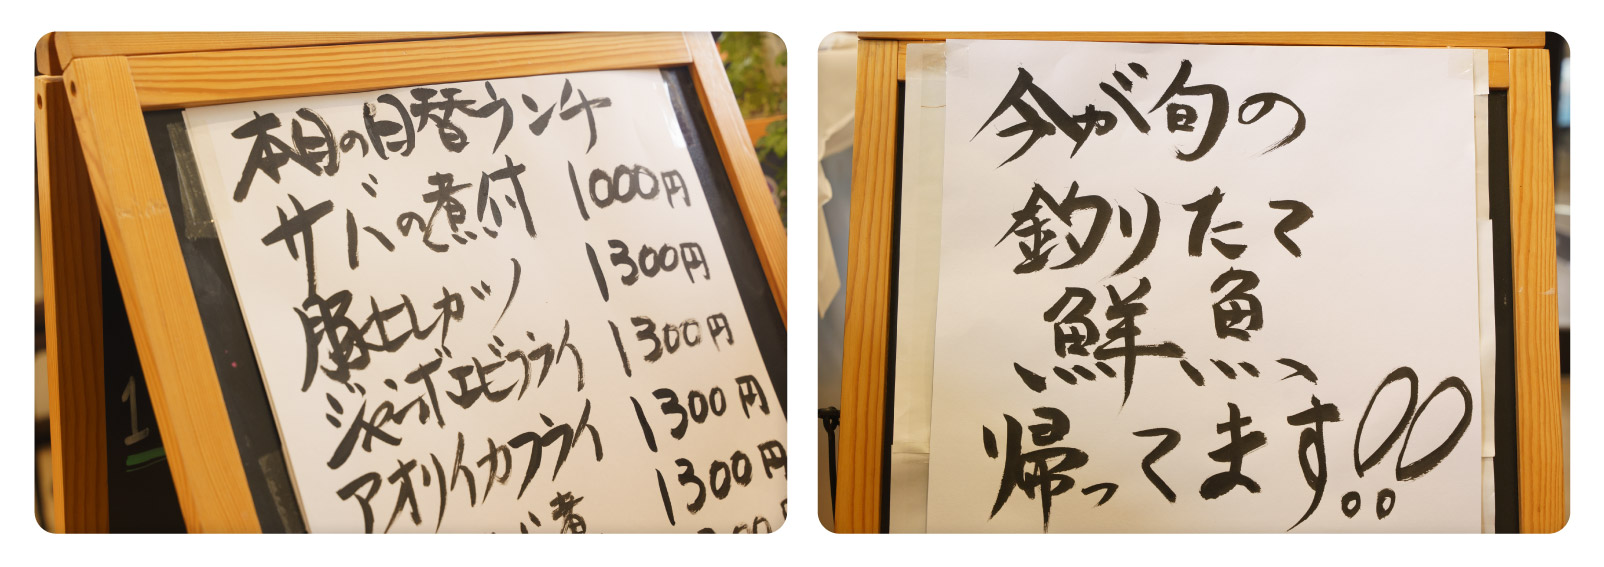 本日の日替ランチ
サバの煮付 1000円
豚ヒレカツ 1300円
ジャンボエビフライ 1300円
アオリイカフライ 1300円
1300円
1
今が旬の
釣りたて
鮮魚
帰ってます!!